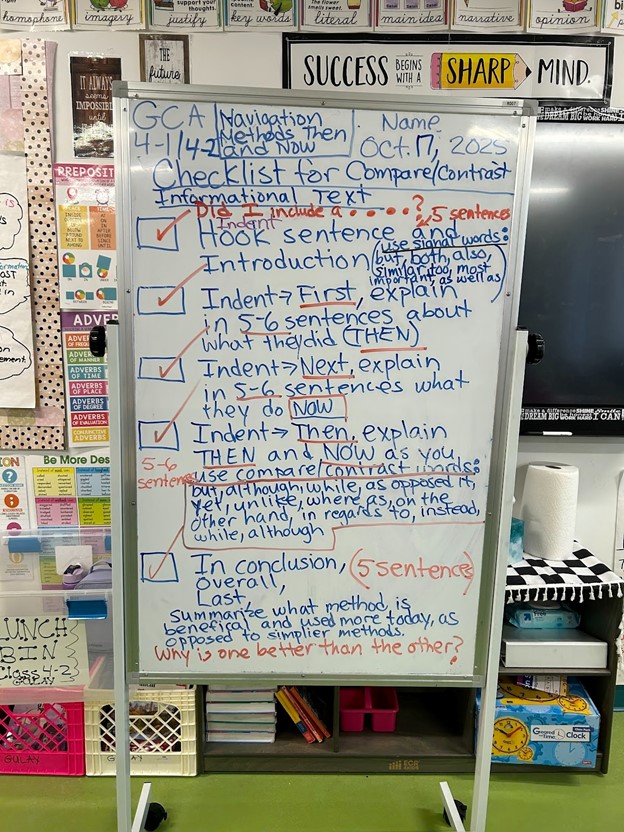 homophone
imagery
support your thoughts.
justify
key words
literal
main idea
narrative
opinion
IT ALWAYS
seems
IMPOSSIBLE
until
the
future
SUCCESS BEGINS WITH A SHARP MIND.
GCA
4-1/4-2
Navigation
Methods Then
and Now
Name
Oct. 17, 2025
Checklist for Compare/Contrast
Informational Text
Did I include a . . . . . ?
5 sentences
Indent
Hook sentence and
Introduction
(use signal words:
but, both, also,
similar, too, most
important, as well as)
Indent→ First, explain
in 5-6 sentences about
what they did (THEN)
Indent→ Next, explain
in 5-6 sentences what
they do NOW
Indent→ Then, explain
THEN and NOW as you
5-6
sentences
use compare/contrast words:
but, although, while, as opposed it,
yet, unlike, where as, on the
other hand, in regards to, instead,
while, although
In conclusion, (5 sentences)
Overall,
Last,
summarize what method, is
benefical and used more today, as
opposed to simplier methods.
Why is one better than the other?
PREPOSIT
ADVER
ADVERBS
OF FREQU
ADVERBS
OF MANNER
ADVERBS
OF TIME
ADVERBS
OF PLACE
ADVERBS
OF DEGREE
ADVERBS
OF EVALUATION
CONJUNCTIVE
ADVERBS
Be More Des
LUNCH
BIN
Class 4-2
GULAY
GULAY
GULAY
make a difference SHINE
DREAM BIG WORK HARD
make a difference SHINE
DREAM BIG WORK HARD I CAN
up & up
Clock
ECR